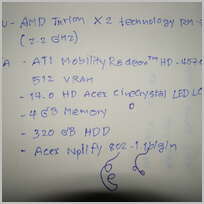 U - AMD Turion X2 technology RM-
(2.2 GHz)
A - ATI Mobility Radeon™ HD - 457
512 VRAM
- 14.0 HD Acer CineCrystal LED LC
- 4 GB Memory
- 320 GB HDD
- Acer Nplify 802.11b/g/n